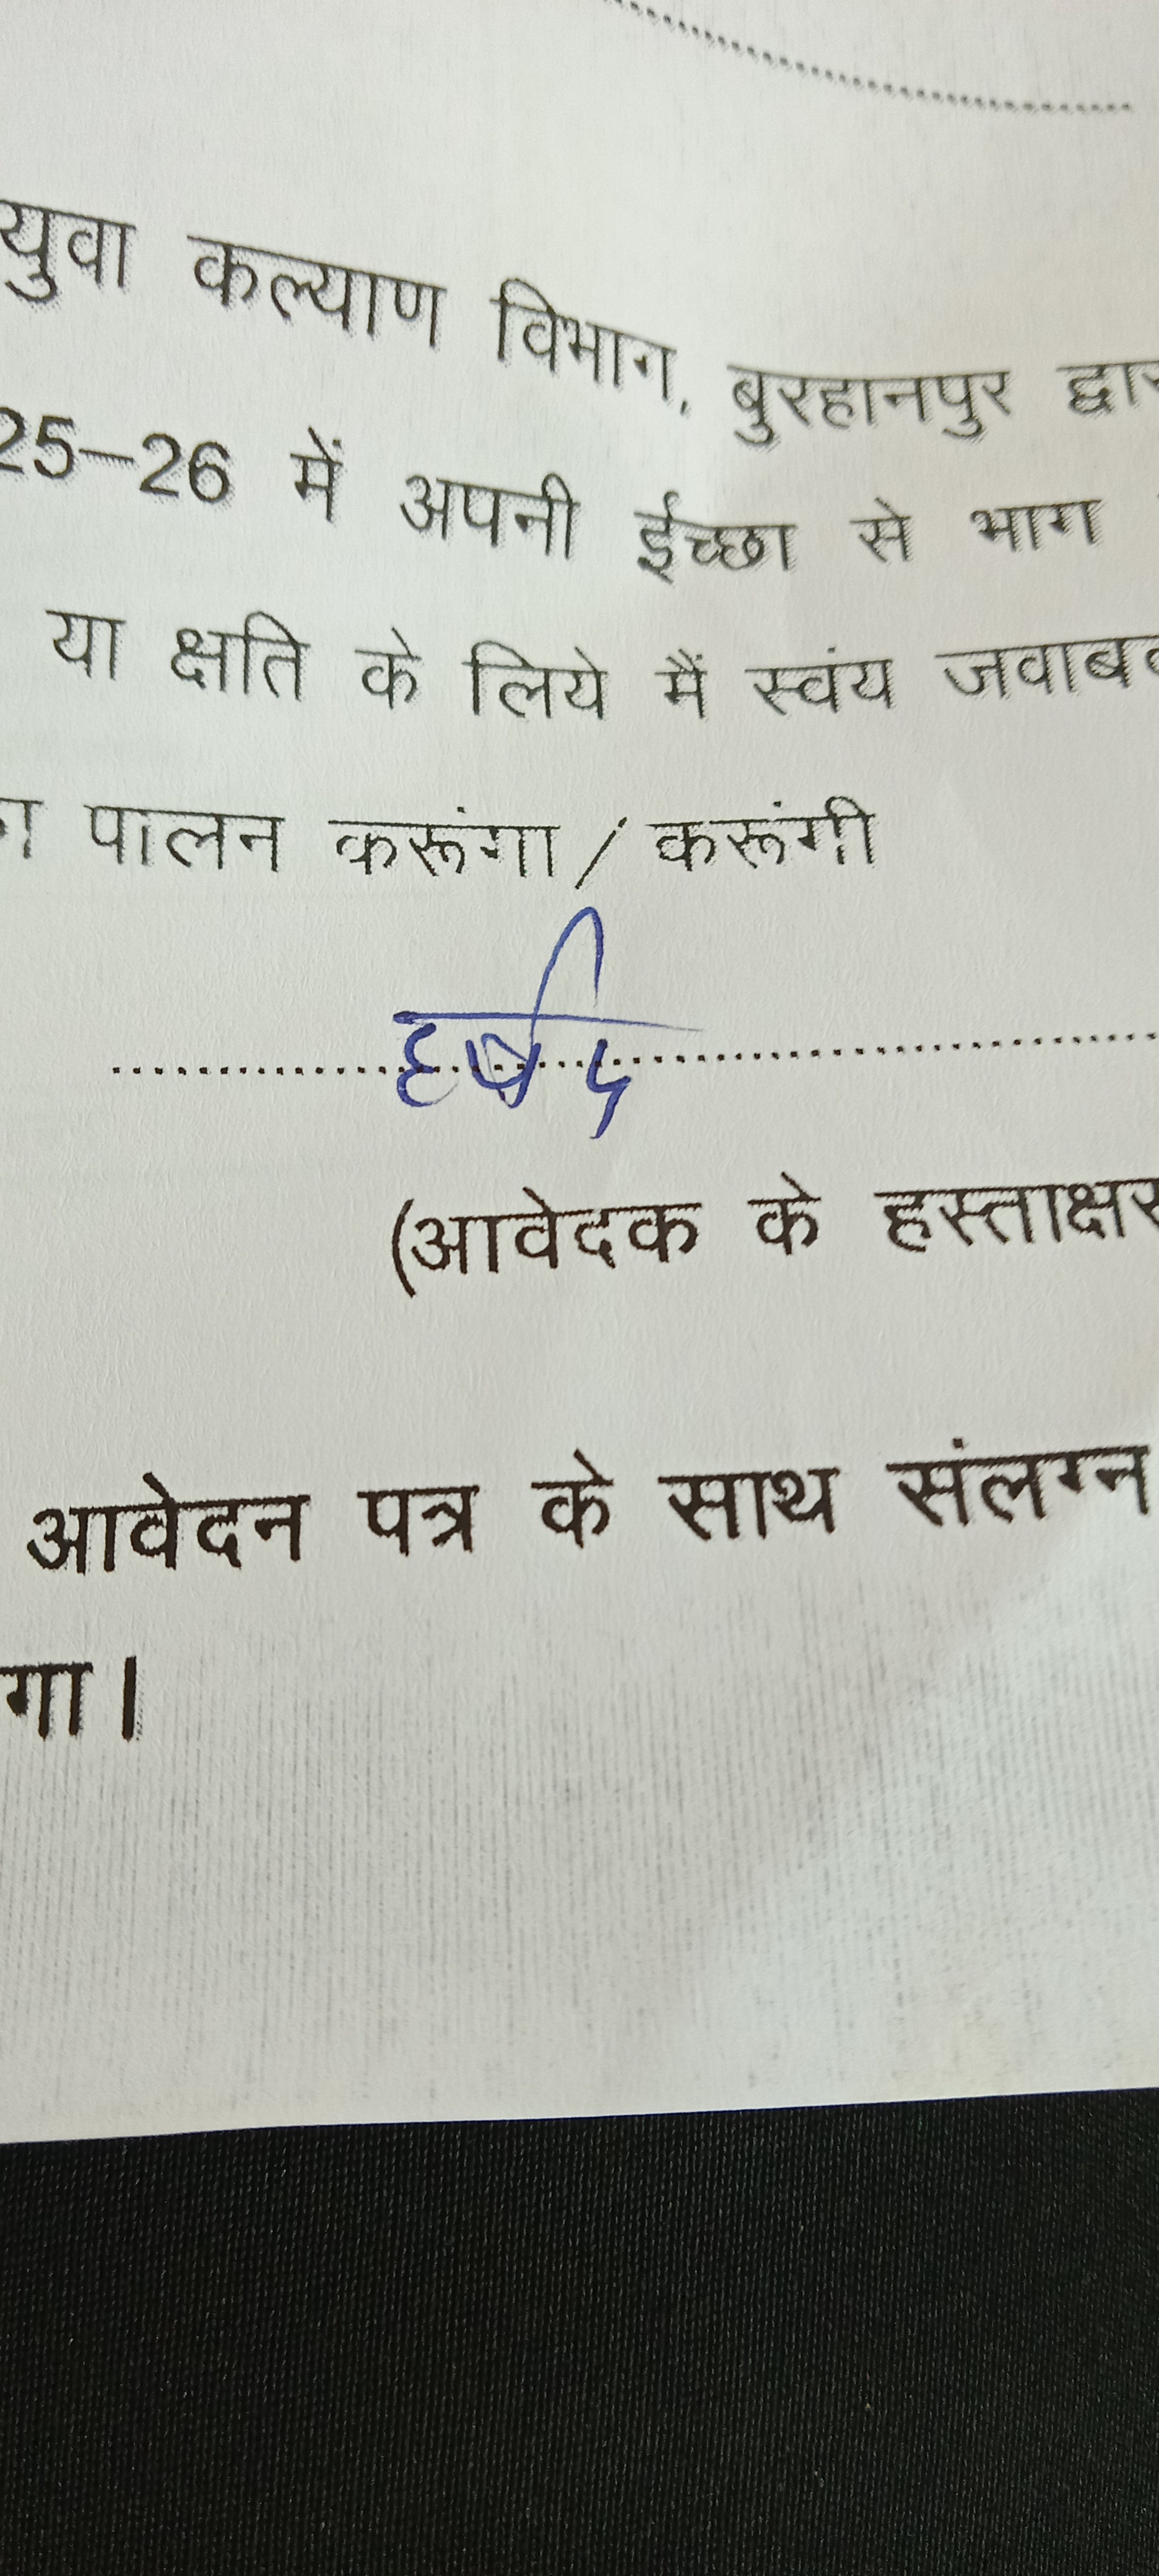 युवा कल्याण विभाग, बुरहानपुर
25–26 में अपनी ईच्छा से भाग
या क्षति के लिये मैं स्वंय
पालन करूंगा / करूंगी
(आवेदक के हस्ताक्षर
आवेदन पत्र के साथ संलग्न
गा।